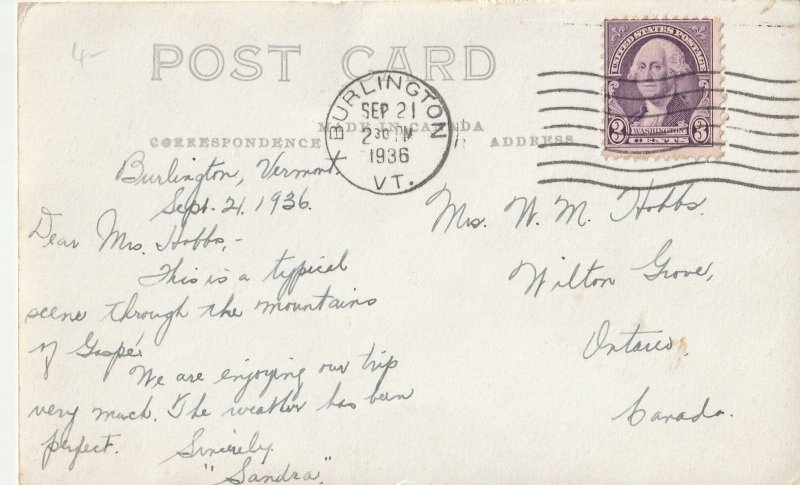 4-
POST CARD
UNITED STATES POSTAGE
3 WASHINGTON 3
CENTS
BURLINGTON
SEP 21
2 30 PM
1936
VT.
MADE IN CANADA
CORRESPONDENCE ADDRESS
Burlington, Vermont,
Sept. 21, 1936.
Dear Mrs. Hobbs,-
This is a typical
scene through the mountains
of Gaspé.
We are enjoying our trip
very much. The weather has been
perfect. Sincerely
"Sandra"
Mrs. W. M. Hobbs.
Wilton Grove,
Ontario.
Canada.